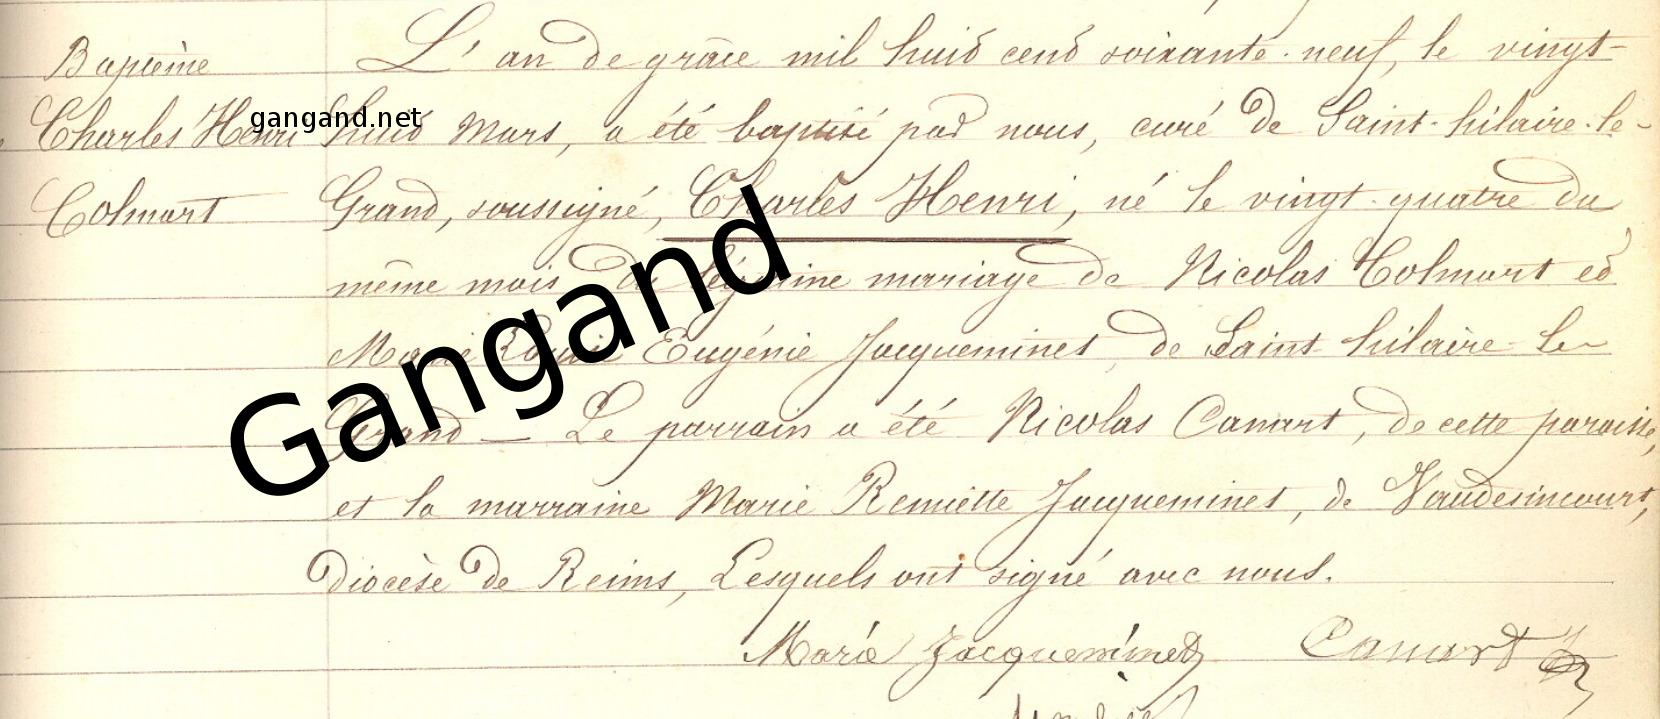 Baptême
Charles Henri
Colmart
L'an de grâce mil huit cent soixante-neuf, le vingt-
huit Mars, a été baptisé par nous, curé de Saint-hilaire-le-
Grand, soussigné, Charles Henri, né le vingt-quatre du
même mois du légitime mariage de Nicolas Colmart et
Marie Eugénie Jacqueminet, de Saint-hilaire-le-
Grand — Le parrain a été Nicolas Canart, de cette paroisse,
et la marraine Marie Remiette Jacqueminet, de Vaudesincourt,
Diocèse de Reims, Lesquels ont signé avec nous.
Marie Jacqueminet Canart
gangand.net
Gangand